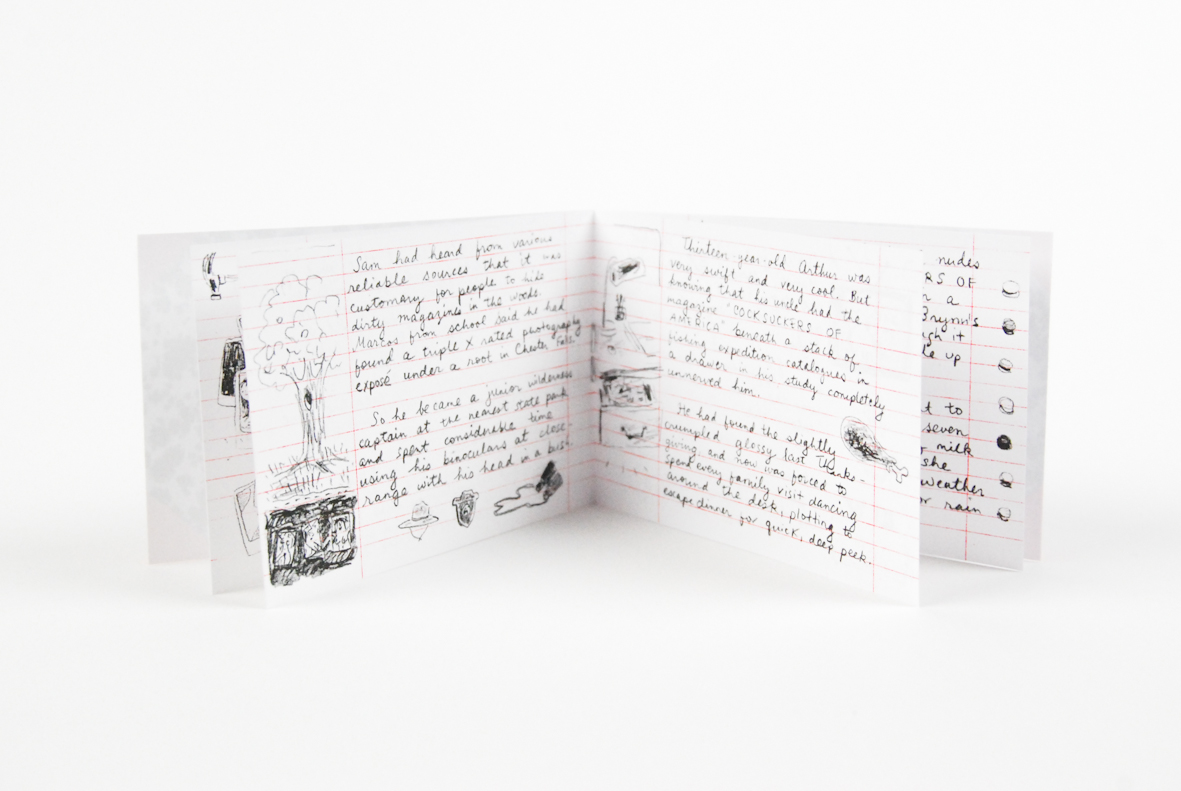 Sam had heard from various
reliable sources that it was
customary for people to hide
dirty magazines in the woods.
Marcos from school said he had
found a triple x rated photography
exposé under a root in Chester Falls.
So he became a junior wilderness
captain at the nearest state park
and spent considerable time
using his binoculars at close-
range with his head in a bush.
Thirteen year-old Arthur was
very swift and very cool. But
knowing that his uncle had the
magazine "COCKSUCKERS OF
AMERICA" beneath a stack of
fishing expedition catalogues in
a drawer in his study completely
unnerved him.
He had found the slightly
crumpled glossy last Thanks-
giving and now was forced to
spend every family visit dancing
around the desk, plotting to
escape dinner for quick, deep peek.
nudes
RS OF
a
Brynn's
it
up
to
seven
milk
she
weather
rain